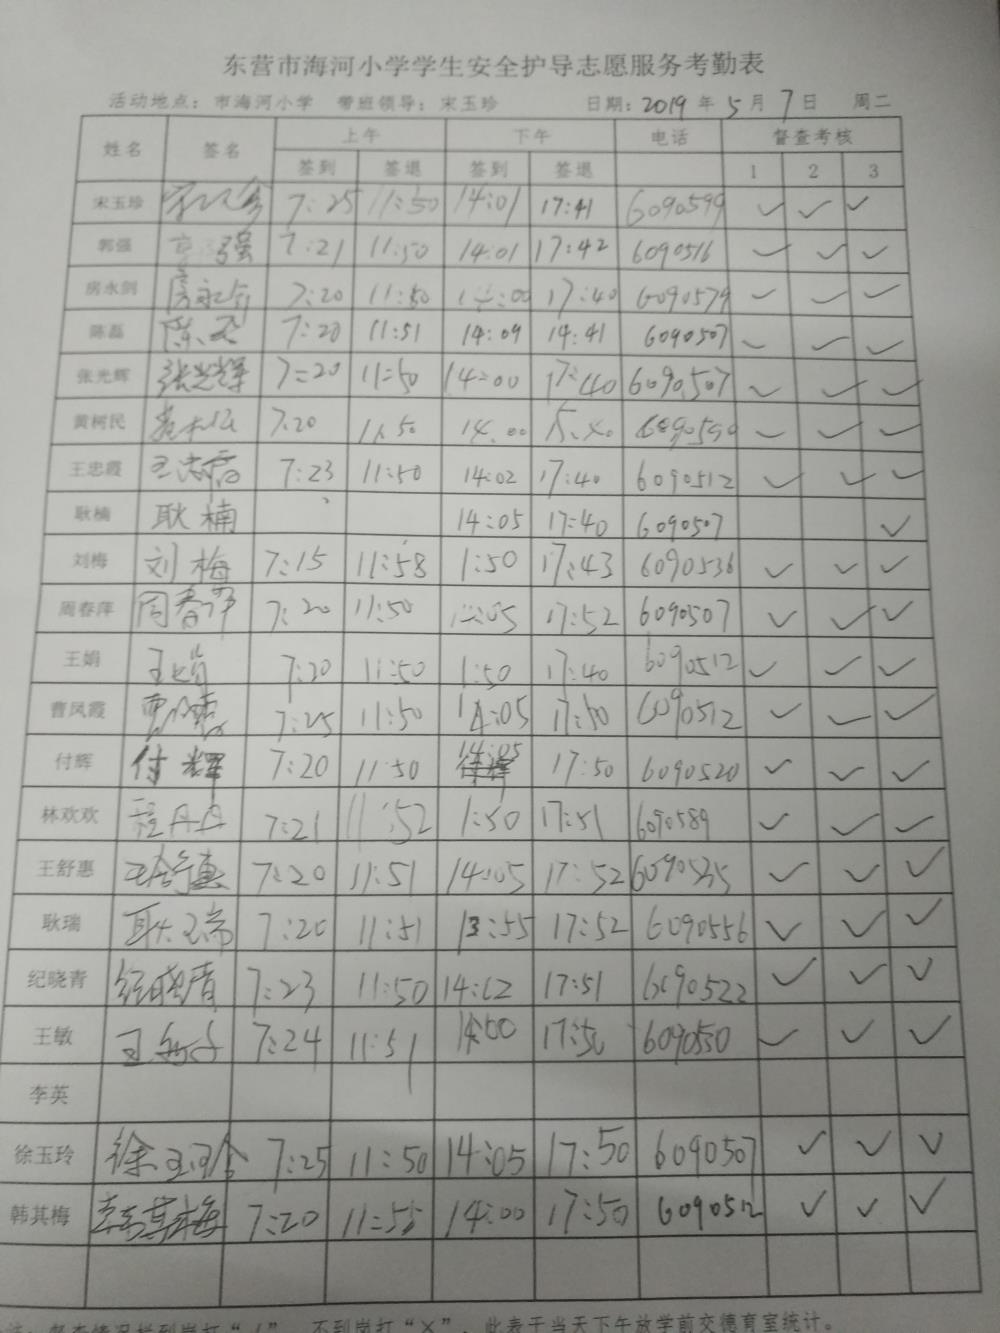 东营市海河小学学生安全护导志愿服务考勤表
活动地点：市海河小学 带班领导：宋玉珍 日期：2019 年 5 月 7 日 周二
姓名 签名 上午 下午 电话 督查考核
签到 签退 签到 签退 1 2 3
宋玉珍 7:25 11:50 14:01 17:41 6090599 ✓ ✓ ✓
郭强 郭强 7:21 11:50 14:01 17:42 6090516 ✓ ✓ ✓
房永剑 房永剑 7:20 11:50 14:00 17:40 6090579 ✓ ✓ ✓
陈磊 陈磊 7:20 11:51 14:09 14:41 6090507 ✓ ✓ ✓
张光辉 张光辉 7:20 11:50 14:00 17:40 6090507 ✓ ✓ ✓
黄树民 7:20 11:50 14:00 6090590 ✓ ✓ ✓
王忠霞 王忠霞 7:23 11:50 14:02 17:40 6090512 ✓ ✓ ✓
耿楠 耿楠 14:05 17:40 6090507 ✓
刘梅 刘梅 7:15 11:58 1:50 17:43 6090536 ✓ ✓ ✓
周春萍 周春萍 7:20 11:50 17:52 6090507 ✓ ✓ ✓
王娟 王娟 7:20 11:50 1:50 17:40 6090512 ✓ ✓ ✓
曹凤霞 曹凤霞 7:25 11:50 14:05 17:50 6090512 ✓ ✓ ✓
付辉 付辉 7:20 11:50 14:05 17:50 6090520 ✓ ✓ ✓
林欢欢 程丹丹 7:21 11:52 1:50 17:51 6090589 ✓ ✓ ✓
王舒惠 王舒惠 7:20 11:51 14:05 17:52 6090535 ✓ ✓ ✓
耿瑞 耿瑞 7:20 11:51 13:55 17:52 6090556 ✓ ✓ ✓
纪晓青 纪晓青 7:23 11:50 14:02 17:51 6090522 ✓ ✓ ✓
王敏 王敏 7:24 11:51 17:50 6090550 ✓ ✓ ✓
李英
徐玉玲 徐玉玲 7:25 11:50 14:05 17:50 6090507 ✓ ✓ ✓
韩其梅 韩其梅 7:20 11:55 14:00 17:50 6090512 ✓ ✓ ✓
到岗打“✓”，不到岗打“×”，此表于当天下午放学前交德育室统计。